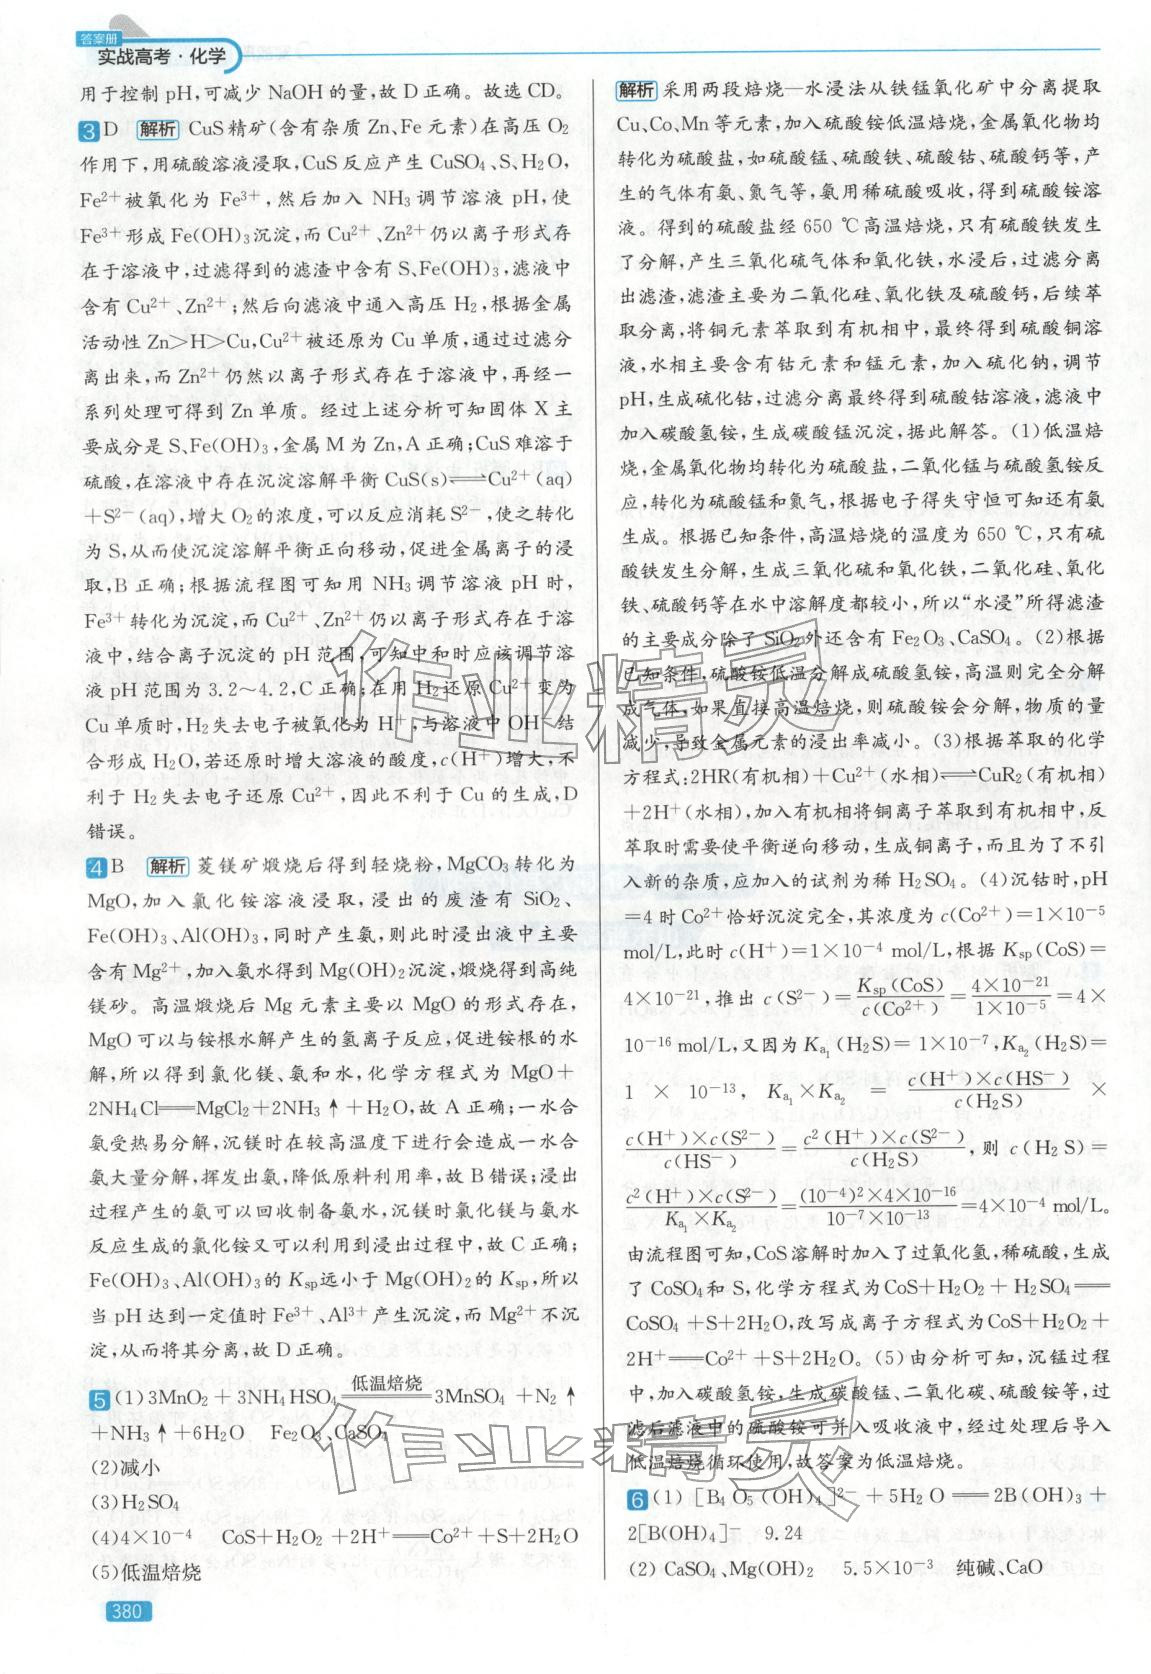 答案册
实战高考·化学
用于控制 pH,可减少 NaOH 的量,故 D 正确。故选 CD。
3 D 解析 CuS 精矿(含有杂质 Zn、Fe 元素)在高压 O₂
作用下,用硫酸溶液浸取,CuS 反应产生 CuSO₄、S、H₂O,
Fe²⁺ 被氧化为 Fe³⁺,然后加入 NH₃ 调节溶液 pH,使
Fe³⁺ 形成 Fe(OH)₃ 沉淀,而 Cu²⁺、Zn²⁺ 仍以离子形式存
在于溶液中,过滤得到的滤渣中含有 S、Fe(OH)₃,滤液中
含有 Cu²⁺、Zn²⁺;然后向滤液中通入高压 H₂,根据金属
活动性 Zn>H>Cu,Cu²⁺ 被还原为 Cu 单质,通过过滤分
离出来,而 Zn²⁺ 仍然以离子形式存在于溶液中,再经一
系列处理可得到 Zn 单质。经过上述分析可知固体 X 主
要成分是 S、Fe(OH)₃,金属 M 为 Zn,A 正确;CuS 难溶于
硫酸,在溶液中存在沉淀溶解平衡 CuS(s)⇌Cu²⁺(aq)
+S²⁻(aq),增大 O₂ 的浓度,可以反应消耗 S²⁻,使之转化
为 S,从而使沉淀溶解平衡正向移动,促进金属离子的浸
取,B 正确;根据流程图可知用 NH₃ 调节溶液 pH 时,
Fe³⁺ 转化为沉淀,而 Cu²⁺、Zn²⁺ 仍以离子形式存在于溶
液中,结合离子沉淀的 pH 范围,可知中和时应该调节溶
液 pH 范围为 3.2~4.2,C 正确;在用 H₂ 还原 Cu²⁺ 变为
Cu 单质时,H₂ 失去电子被氧化为 H⁺,与溶液中 OH⁻ 结
合形成 H₂O,若还原时增大溶液的酸度,c(H⁺)增大,不
利于 H₂ 失去电子还原 Cu²⁺,因此不利于 Cu 的生成,D
错误。
4 B 解析 菱镁矿煅烧后得到轻烧粉,MgCO₃ 转化为
MgO,加入氯化铵溶液浸取,浸出的废渣有 SiO₂、
Fe(OH)₃、Al(OH)₃,同时产生氨,则此时浸出液中主要
含有 Mg²⁺,加入氨水得到 Mg(OH)₂ 沉淀,煅烧得到高纯
镁砂。高温煅烧后 Mg 元素主要以 MgO 的形式存在,
MgO 可以与铵根水解产生的氢离子反应,促进铵根的水
解,所以得到氯化镁、氨和水,化学方程式为 MgO+
2NH₄Cl══MgCl₂+2NH₃↑+H₂O,故 A 正确;一水合
氨受热易分解,沉镁时在较高温度下进行会造成一水合
氨大量分解,挥发出氨,降低原料利用率,故 B 错误;浸出
过程产生的氨可以回收制备氨水,沉镁时氯化镁与氨水
反应生成的氯化铵又可以利用到浸出过程中,故 C 正确;
Fe(OH)₃、Al(OH)₃ 的 Ksp 远小于 Mg(OH)₂ 的 Ksp,所以
当 pH 达到一定值时 Fe³⁺、Al³⁺ 产生沉淀,而 Mg²⁺ 不沉
淀,从而将其分离,故 D 正确。
5 (1)3MnO₂+3NH₄HSO₄ ══低温焙烧══ 3MnSO₄+N₂↑
+NH₃↑+6H₂O Fe₂O₃、CaSO₄
(2)减小
(3)H₂SO₄
(4)4×10⁻⁴ CoS+H₂O₂+2H⁺══Co²⁺+S+2H₂O
(5)低温焙烧
380
解析 采用两段焙烧—水浸法从铁锰氧化矿中分离提取
Cu、Co、Mn 等元素,加入硫酸铵低温焙烧,金属氧化物均
转化为硫酸盐,如硫酸锰、硫酸铁、硫酸钴、硫酸钙等,产
生的气体有氨、氮气等,氨用稀硫酸吸收,得到硫酸铵溶
液。得到的硫酸盐经 650 ℃高温焙烧,只有硫酸铁发生
了分解,产生三氧化硫气体和氧化铁,水浸后,过滤分离
出滤渣,滤渣主要为二氧化硅、氧化铁及硫酸钙,后续萃
取分离,将铜元素萃取到有机相中,最终得到硫酸铜溶
液,水相主要含有钴元素和锰元素,加入硫化钠,调节
pH,生成硫化钴,过滤分离最终得到硫酸钴溶液,滤液中
加入碳酸氢铵,生成碳酸锰沉淀,据此解答。(1)低温焙
烧,金属氧化物均转化为硫酸盐,二氧化锰与硫酸氢铵反
应,转化为硫酸锰和氮气,根据电子得失守恒可知还有氨
生成。根据已知条件,高温焙烧的温度为 650 ℃,只有硫
酸铁发生分解,生成三氧化硫和氧化铁,二氧化硅、氧化
铁、硫酸钙等在水中溶解度都较小,所以“水浸”所得滤渣
的主要成分除了 SiO₂ 外还含有 Fe₂O₃、CaSO₄。(2)根据
已知条件,硫酸铵低温分解成硫酸氢铵,高温则完全分解
成气体,如果直接高温焙烧,则硫酸铵会分解,物质的量
减少,导致金属元素的浸出率减小。(3)根据萃取的化学
方程式:2HR(有机相)+Cu²⁺(水相)⇌CuR₂(有机相)
+2H⁺(水相),加入有机相将铜离子萃取到有机相中,反
萃取时需要使平衡逆向移动,生成铜离子,而且为了不引
入新的杂质,应加入的试剂为稀 H₂SO₄。(4)沉钴时,pH
=4 时 Co²⁺ 恰好沉淀完全,其浓度为 c(Co²⁺)=1×10⁻⁵
mol/L,此时 c(H⁺)=1×10⁻⁴ mol/L,根据 Ksp(CoS)=
4×10⁻²¹,推出 c(S²⁻)=Ksp(CoS)/c(Co²⁺)=4×10⁻²¹/1×10⁻⁵=4×
10⁻¹⁶ mol/L,又因为 Ka₁(H₂S)=1×10⁻⁷,Ka₂(H₂S)=
1×10⁻¹³,Ka₁×Ka₂=c(H⁺)×c(HS⁻)/c(H₂S)×
c(H⁺)×c(S²⁻)/c(HS⁻)=c²(H⁺)×c(S²⁻)/c(H₂S),则 c(H₂S)=
c²(H⁺)×c(S²⁻)/Ka₁×Ka₂=(10⁻⁴)²×4×10⁻¹⁶/10⁻⁷×10⁻¹³=4×10⁻⁴ mol/L。
由流程图可知,CoS 溶解时加入了过氧化氢,稀硫酸,生成
了 CoSO₄ 和 S,化学方程式为 CoS+H₂O₂+H₂SO₄══
CoSO₄+S+2H₂O,改写成离子方程式为 CoS+H₂O₂+
2H⁺══Co²⁺+S+2H₂O。(5)由分析可知,沉锰过程
中,加入碳酸氢铵,生成碳酸锰、二氧化碳、硫酸铵等,过
滤后滤液中的硫酸铵可并入吸收液中,经过处理后导入
低温焙烧循环使用,故答案为低温焙烧。
6 (1)[B₄O₅(OH)₄]²⁻+5H₂O══2B(OH)₃+
2[B(OH)₄]⁻ 9.24
(2)CaSO₄、Mg(OH)₂ 5.5×10⁻³ 纯碱、CaO
作业精灵
作业精灵